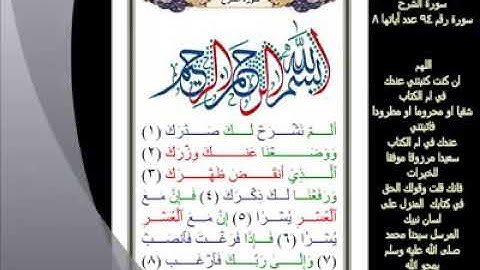 سورة الشرح
بسم الله الرحمن الرحيم
أَلَمْ نَشْرَحْ لَكَ صَدْرَكَ (١)
وَوَضَعْنَا عَنكَ وِزْرَكَ (٢)
الَّذِي أَنقَضَ ظَهْرَكَ (٣)
وَرَفَعْنَا لَكَ ذِكْرَكَ (٤) فَإِنَّ مَعَ
الْعُسْرِ يُسْرًا (٥) إِنَّ مَعَ الْعُسْرِ
يُسْرًا (٦) فَإِذَا فَرَغْتَ فَانصَبْ
(٧) وَإِلَى رَبِّكَ فَارْغَب (٨)
سورة الشرح
سورة رقم ٩٤ عدد آياتها ٨
اللهم
ان كنت كتبتني عندك
في ام الكتاب
شقيا او محروما او مطرودا
فأثبتني
عندك في ام الكتاب
سعيدا مرزوقا موفقا
للخيرات
فانك قلت وقولك الحق
في كتابك المنزل على
لسان نبيك
المرسل سيدنا محمد
صلى الله عليه وسلم
يمحو الله